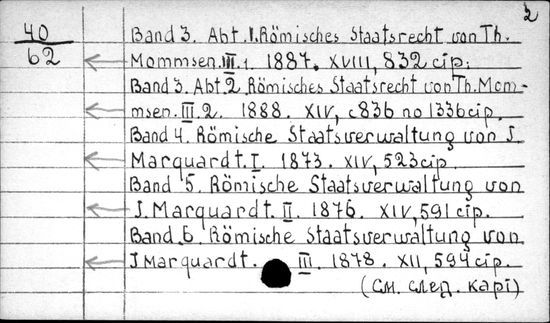 2
40
62
Band 3. Abt. I. Römisches Staatsrecht von Th.
Mommsen. III. 1. 1887. XVIII, 832 cip.
Band 3. Abt 2. Römisches Staatsrecht von Th. Mom-
msen. III. 2. 1888. XIV, c 836 no 1336 cip.
Band 4. Römische Staatsverwaltung von J.
Marquardt. I. 1873. XIV, 523 cip
Band 5. Römische Staatsverwaltung von
J. Marquardt. II. 1876. XIV, 591 cip.
Band. 6. Römische Staatsverwaltung von
J Marquardt. III. 1878. XII, 594 cip.
(См. след. карі)